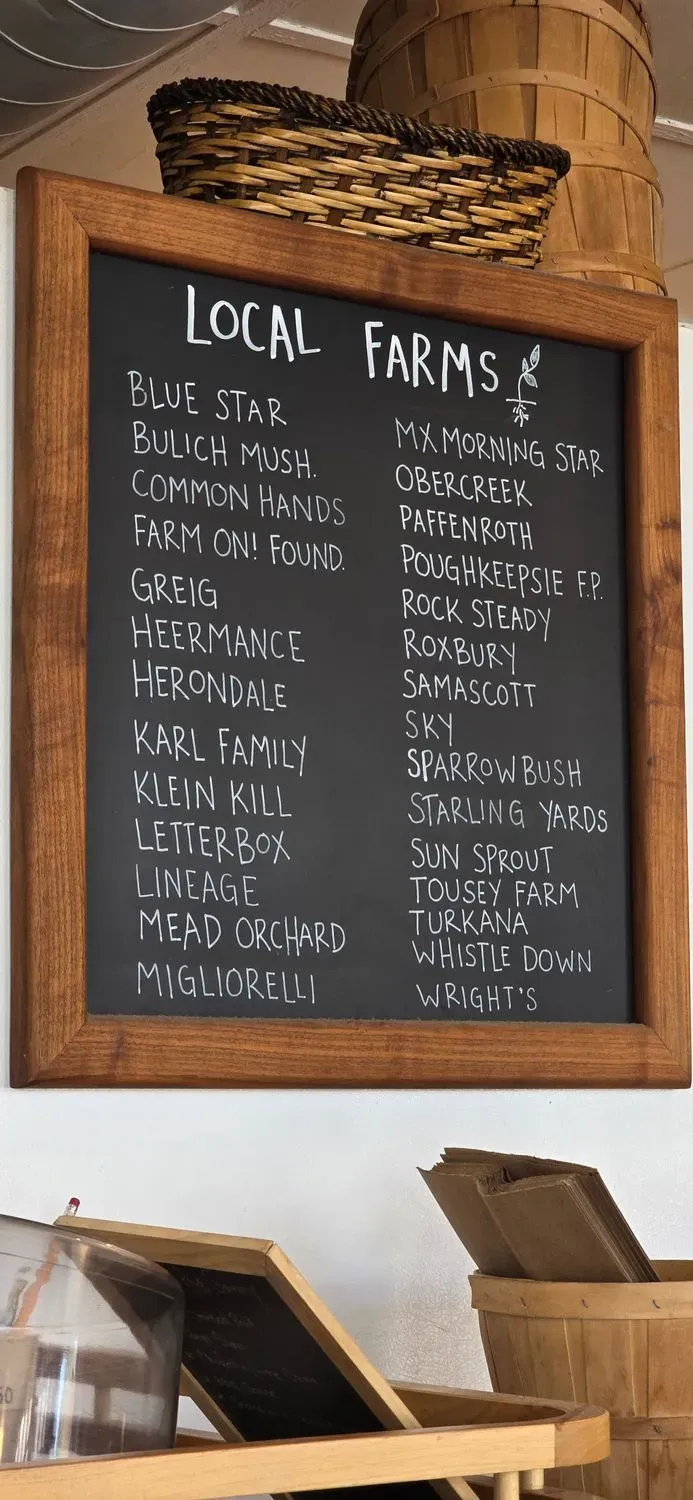 LOCAL FARMS
BLUE STAR
BULICH MUSH.
COMMON HANDS
FARM ON! FOUND.
GREIG
HEERMANCE
HERONDALE
KARL FAMILY
KLEIN KILL
LETTERBOX
LINEAGE
MEAD ORCHARD
MIGLIORELLI
MX MORNING STAR
OBERCREEK
PAFFENROTH
POUGHKEEPSIE F.P.
ROCK STEADY
ROXBURY
SAMASCOTT
SKY
SPARROWBUSH
STARLING YARDS
SUN SPROUT
TOUSEY FARM
TURKANA
WHISTLE DOWN
WRIGHT'S